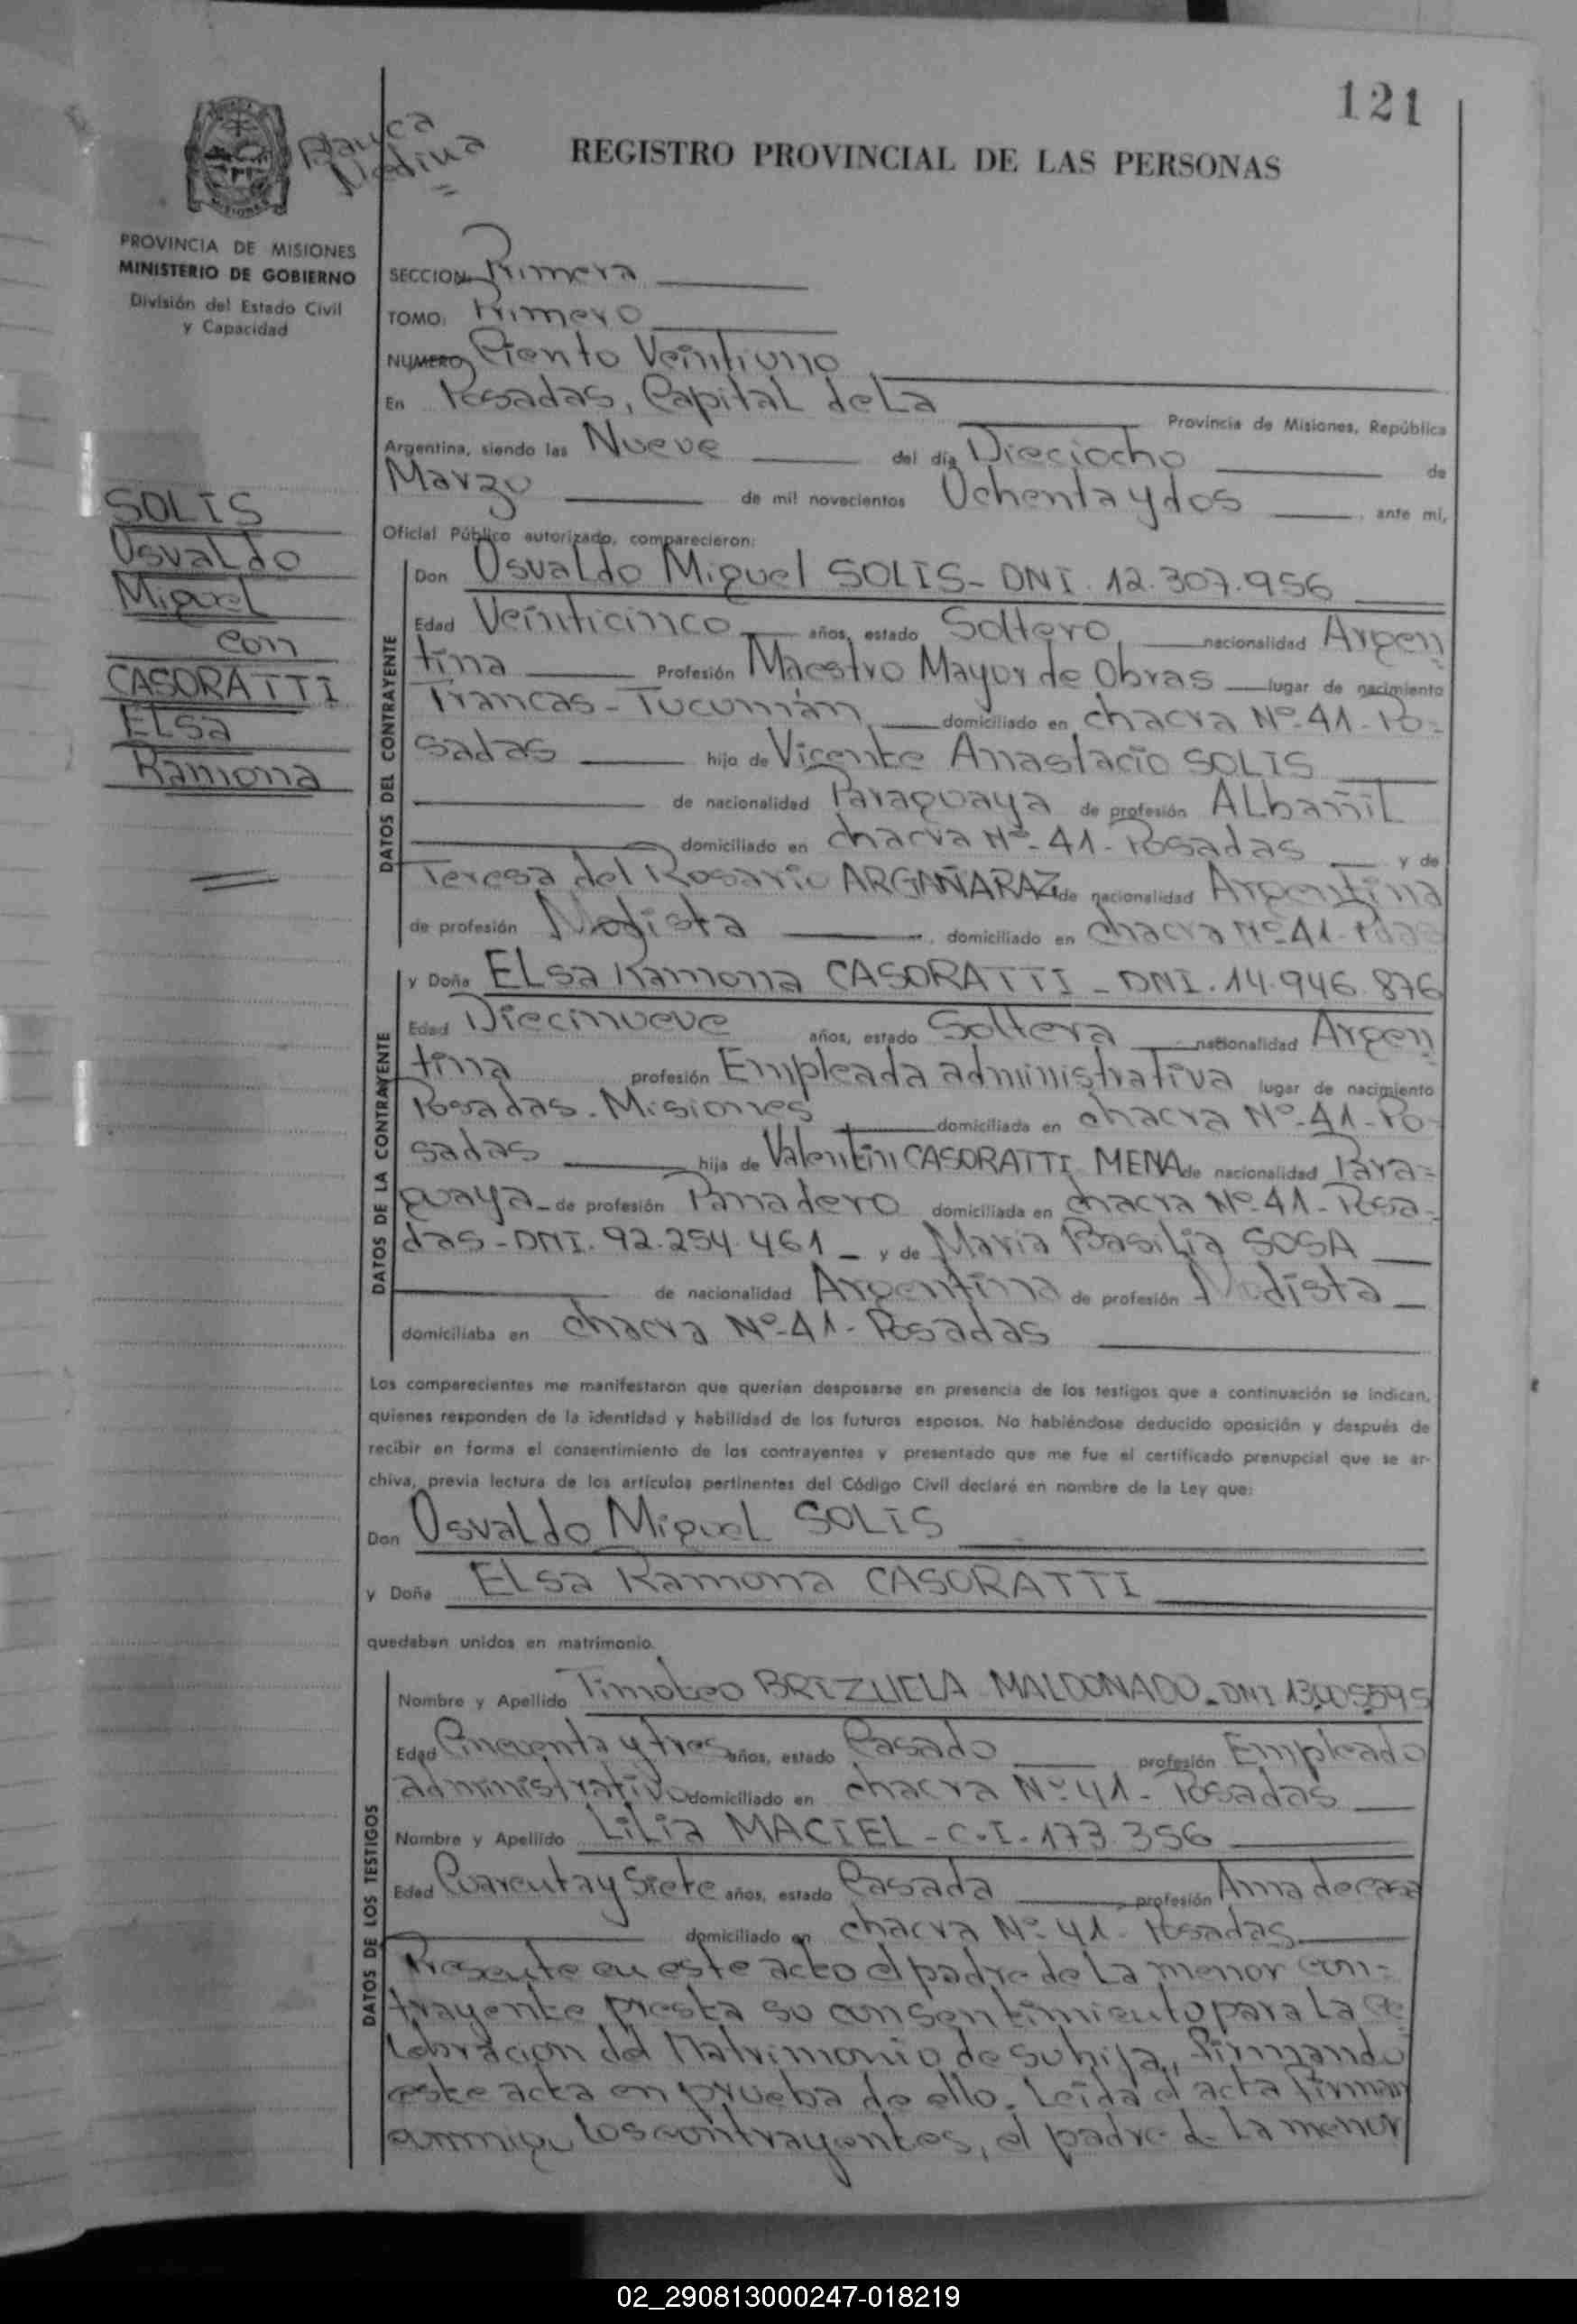 121
REGISTRO PROVINCIAL DE LAS PERSONAS
MISIONES
PROVINCIA DE MISIONES
MINISTERIO DE GOBIERNO
División del Estado Civil
y Capacidad
SOLIS
Osvaldo
Miguel
con
CASORATTI
Elsa
Ramona
SECCION Primera
TOMO: Primero
NUMERO Ciento Veintiuno
En Posadas, Capital de La Provincia de Misiones, República
Argentina, siendo las Nueve del día Dieciocho de
Marzo de mil novecientos Ochenta y dos, ante mi,
Oficial Público autorizado, comparecieron:
DATOS DEL CONTRAYENTE
Don Osvaldo Miguel SOLIS - DNI. 12.307.956
Edad Veinticinco años, estado Soltero nacionalidad Argen
tina Profesión Maestro Mayor de Obras lugar de nacimiento
Trancas - Tucumán domiciliado en chacra Nº 41 - Po-
sadas hijo de Vicente Anastacio SOLIS
de nacionalidad Paraguaya de profesión Albañil
domiciliado en chacra Nº 41 - Posadas y de
Teresa del Rosario ARGAÑARAZ de nacionalidad Argentina
de profesión Modista, domiciliado en chacra Nº 41 - Pdas
DATOS DE LA CONTRAYENTE
y Doña Elsa Ramona CASORATTI - DNI. 14.946.876
Edad Diecinueve años, estado Soltera nacionalidad Argen
tina profesión Empleada administrativa lugar de nacimiento
Posadas - Misiones domiciliada en chacra Nº 41 - Po-
sadas hija de Valentín CASORATTI MENA de nacionalidad Para-
guaya - de profesión Panadero domiciliada en chacra Nº 41 - Posa-
das - DNI. 92.254.461 - y de Maria Basilia SOSA
de nacionalidad Argentina de profesión Modista
domiciliaba en chacra Nº 41 - Posadas
Los comparecientes me manifestaron que querían desposarse en presencia de los testigos que a continuación se indican,
quienes responden de la identidad y habilidad de los futuros esposos. No habiéndose deducido oposición y después de
recibir en forma el consentimiento de los contrayentes y presentado que me fue el certificado prenupcial que se ar-
chiva, previa lectura de los artículos pertinentes del Código Civil declaré en nombre de la Ley que:
Don Osvaldo Miguel SOLIS
y Doña Elsa Ramona CASORATTI
quedaban unidos en matrimonio.
DATOS DE LOS TESTIGOS
Nombre y Apellido Timoteo BRIZUELA MALDONADO - DNI 13.005.595
Edad Cincuenta y tres años, estado Casado profesión Empleado
administrativo domiciliado en chacra Nº 41 - Posadas
Nombre y Apellido Lilia MACIEL - C.I. 173.356
Edad Cuarenta y Siete años, estado Casada, profesión Ama de casa
domiciliado en chacra Nº 41 - Posadas
Presente en este acto el padre de la menor con-
trayente presta su consentimiento para la ce
lebracion del Matrimonio de su hija, firmando
este acta en prueba de ello. Leída el acta firman
conmigo los contrayentes, el padre de la menor
02_290813000247-018219